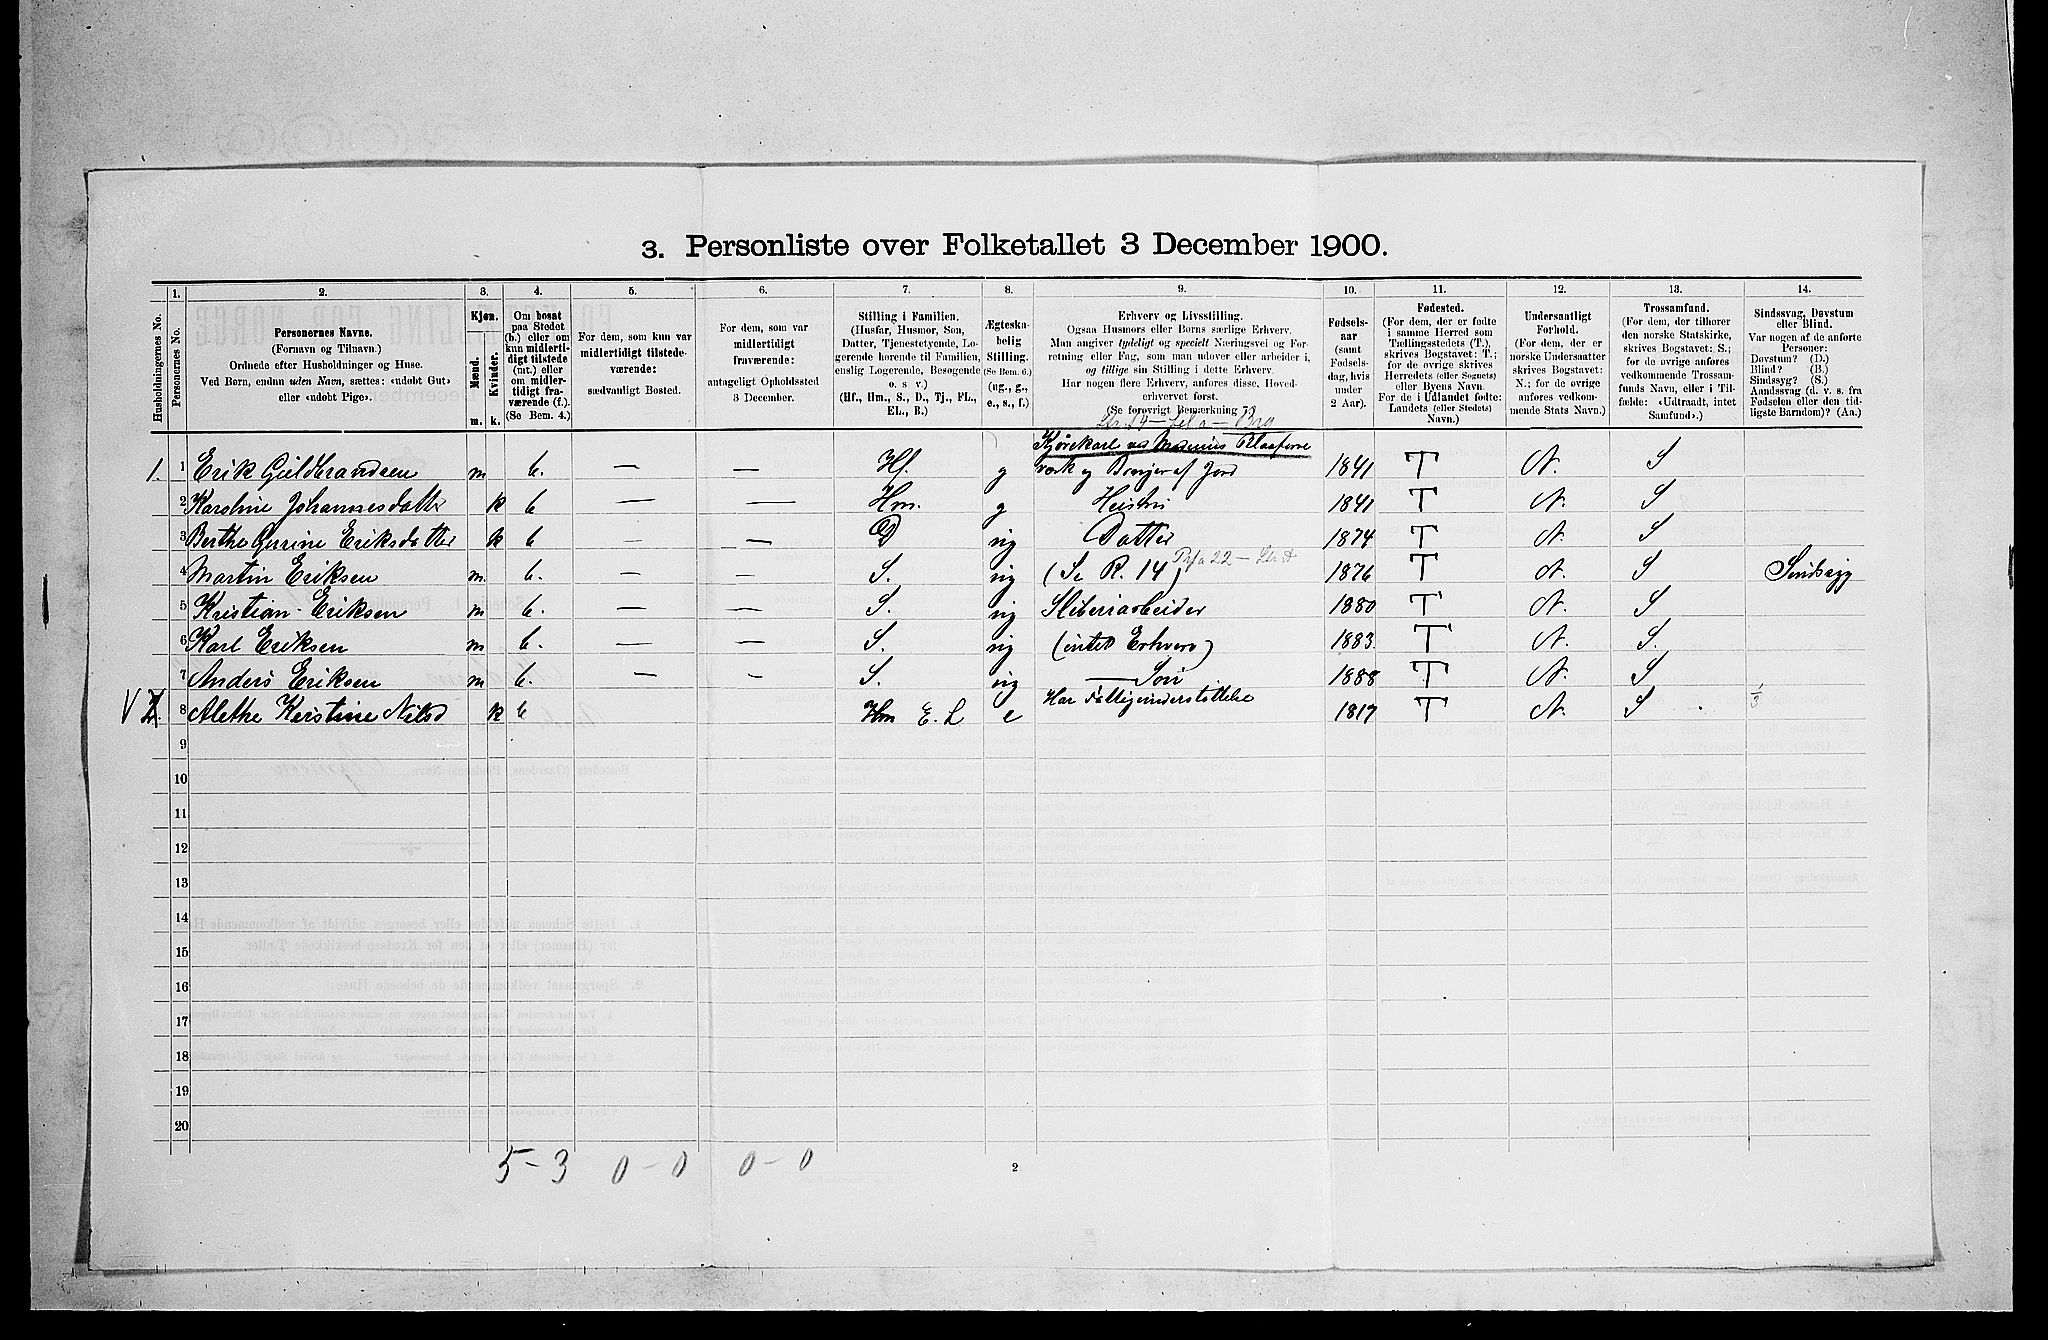 3. Personliste over Folketallet 3 December 1900.
Husholdningernes No.
1. Personernes No.
2. Personernes Navne.
(Fornavn og Tilnavn.)
Ordnede efter Husholdninger og Huse.
Ved Børn, endnu uden Navn, sættes: «udøbt Gut»
eller «udøbt Pige».
3. Kjøn.
Mænd. Kvinder.
m. k.
4. Om bosat
paa Stedet
(b.) eller om
kun midlerti-
digt tilstede
(mt.) eller
om midler-
tidigt fra-
værende (f.).
(Se Bem. 4.)
5. For dem, som kun var
midlertidigt tilstede-
værende:
sædvanligt Bosted.
6. For dem, som var
midlertidigt
fraværende:
antageligt Opholdssted
3 December.
7. Stilling i Familien.
(Husfar, Husmor, Søn,
Datter, Tjenestetyende, Lo-
gerende hørende til Familien,
enslig Logerende, Besøgende
o. s v.)
(Hf., Hm., S., D., Tj., FL.,
EL., B.)
8. Ægteska-
belig
Stilling.
(Se Bem. 6.)
(ug., g.,
e., s., f.)
9. Erhverv og Livsstilling.
Ogsaa Husmors eller Børns særlige Erhverv.
Man angiver tydeligt og specielt Næringsvei og For-
retning eller Fag, som man udøver eller arbeider i,
og tillige sin Stilling i dette Erhverv.
Har nogen flere Erhverv, anføres disse, Hoved-
erhvervet først.
(Se forøvrigt Bemærkning 7.)
10. Fødsels-
aar
(samt
Fødsels-
dag, hvis
under
2 Aar).
11. Fødested.
(For dem, der er fødte
i samme Herred som
Tællingsstedets (T.),
skrives Bogstavet: T.;
for de øvrige skrives
Herredets (eller Sognets)
eller Byens Navn.
For de i Udlandet fødte:
Landets (eller Stedets)
Navn.)
12. Undersaatligt
Forhold.
(For dem, der er
norske Undersaatter
skrives Bogstavet:
N.; for de øvrige
anføres vedkom-
mende Stats Navn.)
13. Trossamfund.
(For dem, der tilhører
den norske Statskirke,
skrives Bogstavet: S.;
for de øvrige anføres
vedkommende Trossam-
funds Navn, eller i Til-
fælde: «Udtraadt, intet
Samfund».)
14. Sindssvag, Døvstum
eller Blind.
Var nogen af de anførte
Personer:
Døvstum? (D.)
Blind? (B.)
Sindssyg? (S.)
Aandssvag (d. v. s. fra
Fødselen eller den tid-
ligste Barndom)? (Aa.)
Kjørekarl ved
1. 1 Erik Guldbrandsen m b. — — Hf. g 1841 T N. S
2 Karoline Johannesdatter k b — — Hm. g 1841 T N. S
3 Berthe Gurine Eriksdatter k b — — D ug Datter 1874 T N. S
4 Martin Eriksen m. b. — — S. ug (Se R. 14) 1876 T N. S Sindssyg
5 Kristian Eriksen m b. — — S. ug Sliberiarbeider 1880 T N. S
6 Karl Eriksen m b. — — S. ug (intet Erhverv) 1883. T N. S.
7 Anders Eriksen m b. — — S. ug Søn 1888 T N. S
8 Alethe Kerstine Nilsd k b Hm E. L e Har Fattigunderstøttelse 1817 T N. S
9
10
11
12
13
14
15
16
17
18
19
20
5-3 0-0 0-0
2